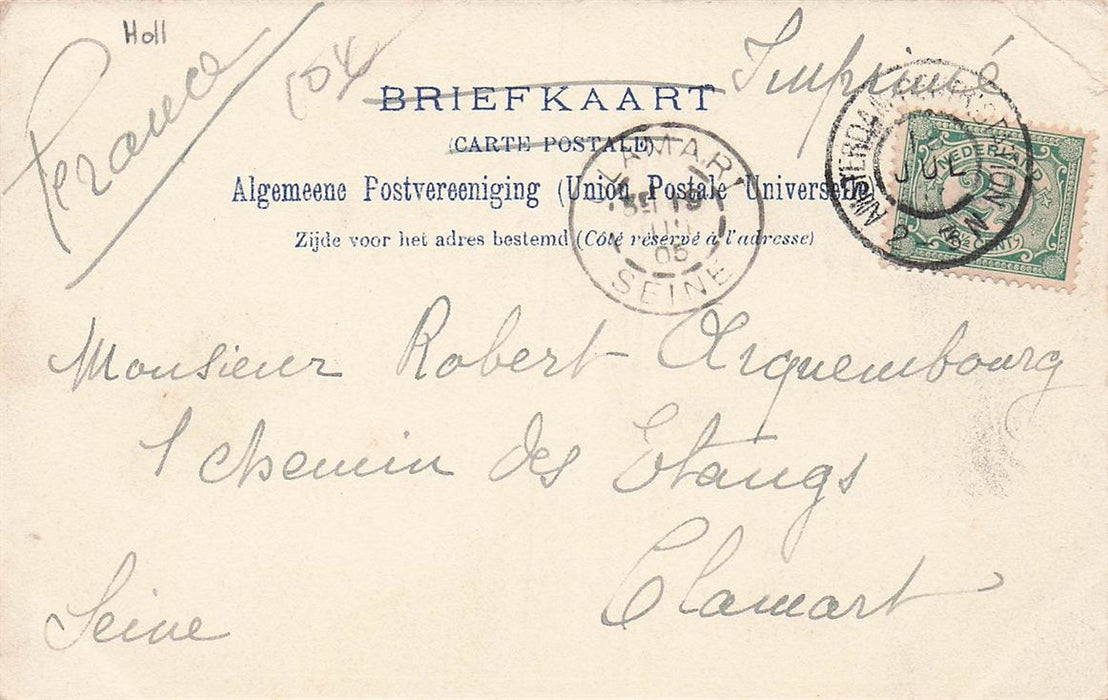 Holl
France
104
Imprimé
BRIEFKAART
(CARTE POSTALE)
Algemeene Postvereeniging (Union Postale Universelle)
Zijde voor het adres bestemd (Côté réservé à l'adresse)
CLAMART
05
SEINE
AMSTERDAM
JUL
NEDERLAND
Monsieur Robert Arquembourg
1 chemin des Etangs
Clamart
Seine